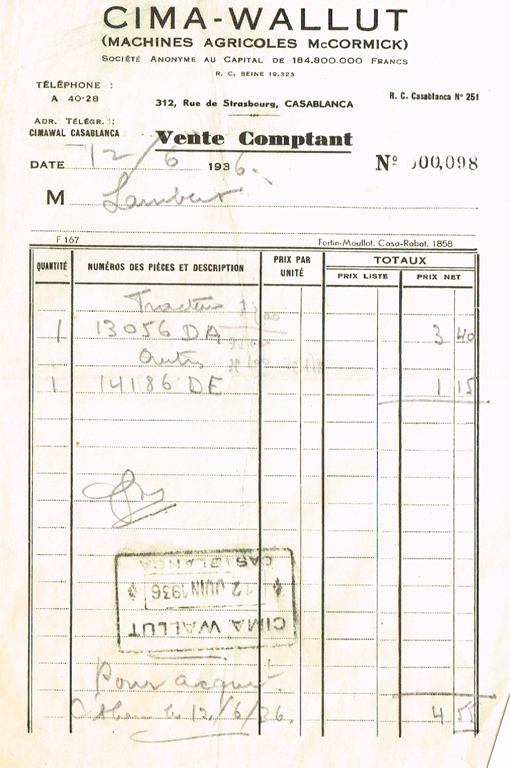 CIMA-WALLUT
(MACHINES AGRICOLES McCORMICK)
SOCIÉTÉ ANONYME AU CAPITAL DE 184.800.000 FRANCS
R. C. SEINE 19.323
TÉLÉPHONE :
A 40-28
R. C. Casablanca N° 251
312, Rue de Strasbourg, CASABLANCA
ADR. TÉLÉGR. :
CIMAWAL CASABLANCA
Vente Comptant
DATE 12/6 1936.
N° 00,098
M Lambert
F 167
Fortin-Moullot, Casa-Rabat. 1858
QUANTITÉ NUMÉROS DES PIÈCES ET DESCRIPTION PRIX PAR UNITÉ TOTAUX
PRIX LISTE PRIX NET
Tracteur
1 13056 DA 3 40
1 14186 DE 1 15
CASABLANCA
12 JUIN 1936
CIMA WALLUT
Pour acquit
le 12/6/36.
4 55